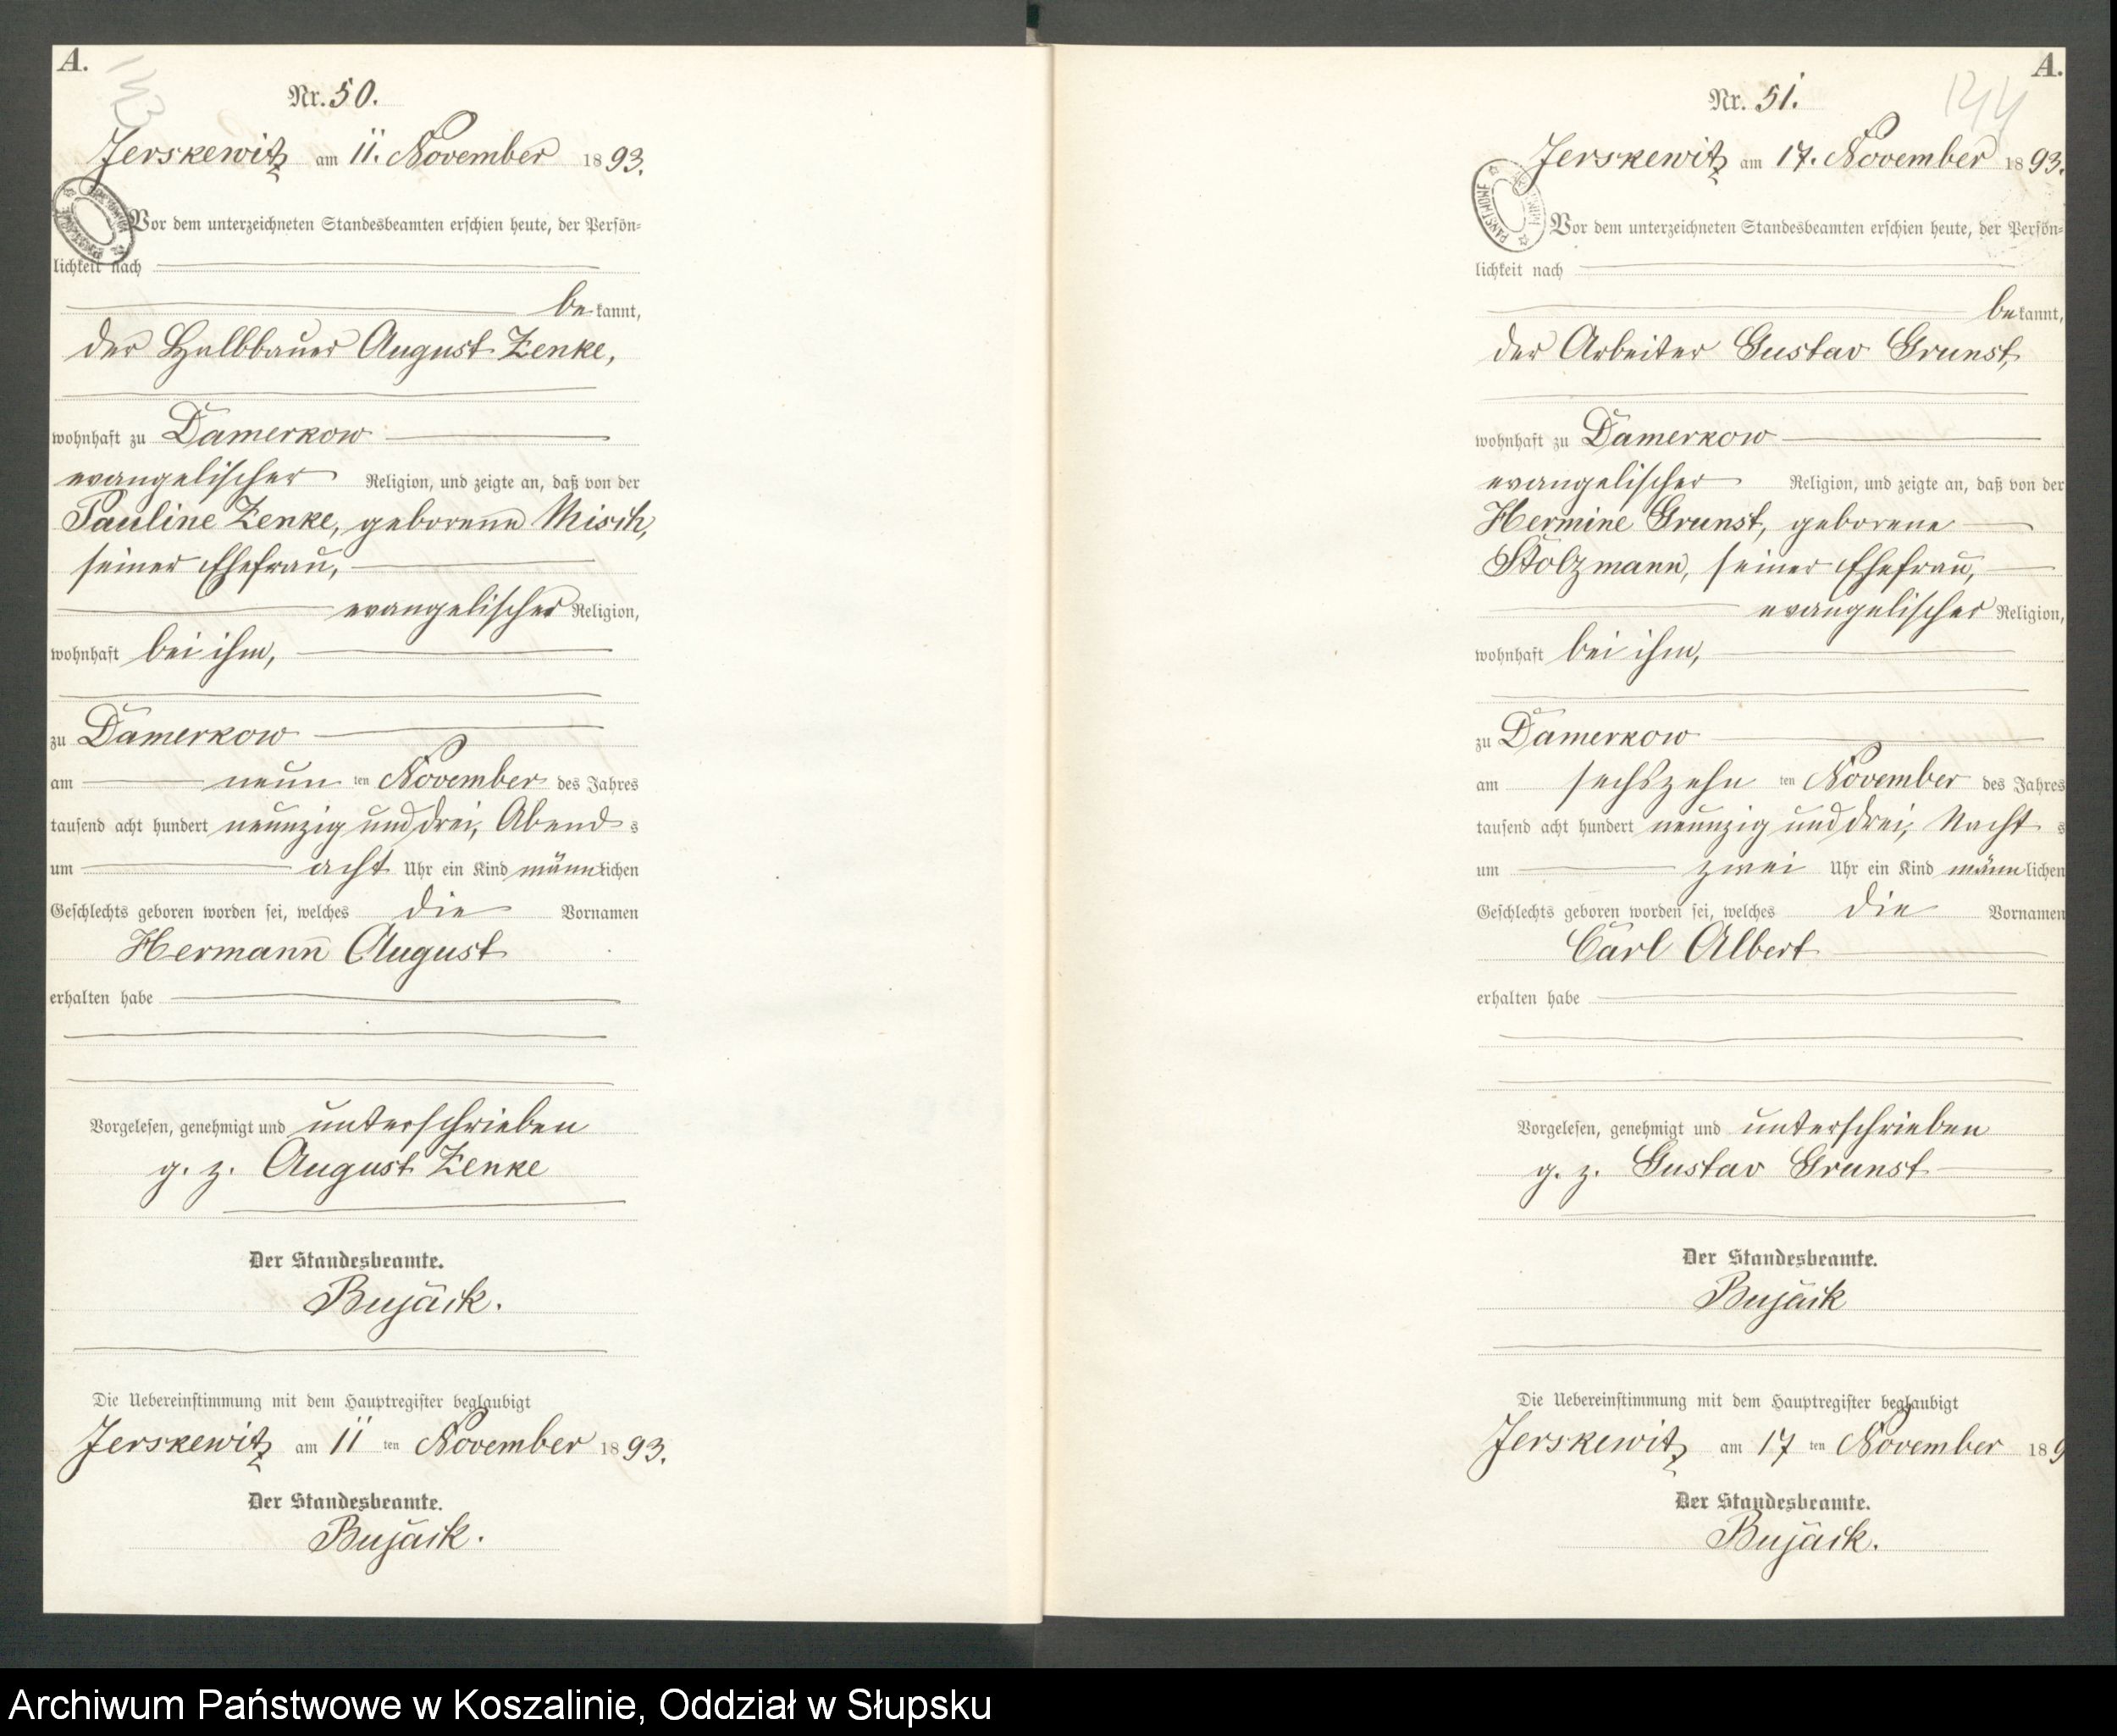 A.
143
Nr. 50.
Jerskewitz am 11. November 1893.
Vor dem unterzeichneten Standesbeamten erschien heute, der Persön=
lichkeit nach
bekannt,
der Halbbauer August Zenke,
wohnhaft zu Damerkow
evangelischer Religion, und zeigte an, daß von der
Pauline Zenke, geborene Misch,
seiner Ehefrau,
evangelischer Religion,
wohnhaft bei ihm,
zu Damerkow
am neun ten November des Jahres
tausend acht hundert neunzig und drei, Abends
um acht Uhr ein Kind männlichen
Geschlechts geboren worden sei, welches die Vornamen
Hermann August
erhalten habe
Vorgelesen, genehmigt und unterschrieben
g. z. August Zenke
Der Standesbeamte.
Bujack.
Die Uebereinstimmung mit dem Hauptregister beglaubigt
Jerskewitz am 11 ten November 1893.
Der Standesbeamte.
Bujack.
A.
144
Nr. 51.
Jerskewitz am 17. November 1893.
Vor dem unterzeichneten Standesbeamten erschien heute, der Persön=
lichkeit nach
bekannt,
der Arbeiter Gustav Grunst,
wohnhaft zu Damerkow
evangelischer Religion, und zeigte an, daß von der
Hermine Grunst, geborene
Stolzmann, seiner Ehefrau,
evangelischer Religion,
wohnhaft bei ihm,
zu Damerkow
am sechszehn ten November des Jahres
tausend acht hundert neunzig und drei, Nachts
um zwei Uhr ein Kind männlichen
Geschlechts geboren worden sei, welches die Vornamen
Carl Albert
erhalten habe
Vorgelesen, genehmigt und unterschrieben
g. z. Gustav Grunst
Der Standesbeamte.
Bujack
Die Uebereinstimmung mit dem Hauptregister beglaubigt
Jerskewitz am 17 ten November 189
Der Standesbeamte.
Bujack.
Archiwum Państwowe w Koszalinie, Oddział w Słupsku